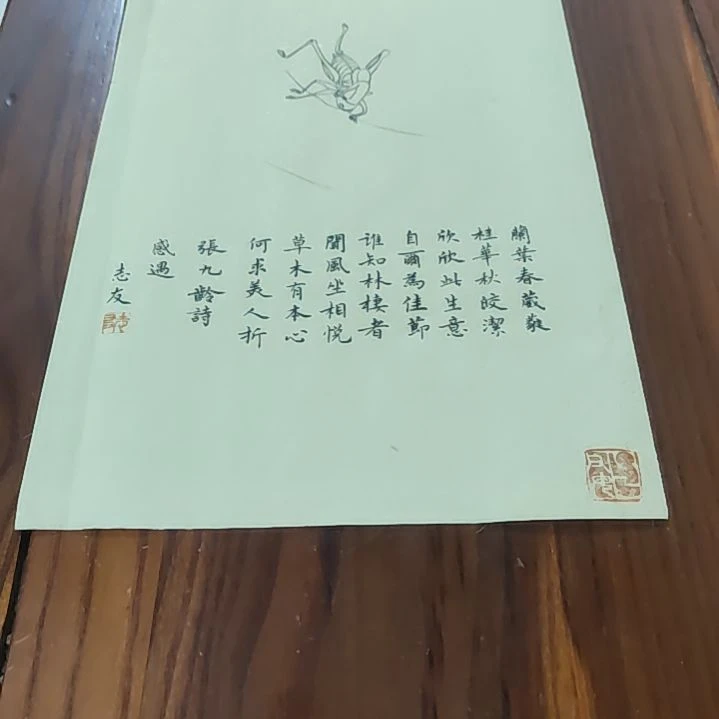 蘭葉春葳蕤
桂華秋皎潔
欣欣此生意
自爾為佳節
誰知林棲者
聞風坐相悦
草木有本心
何求美人折
張九齡詩
感遇
志友